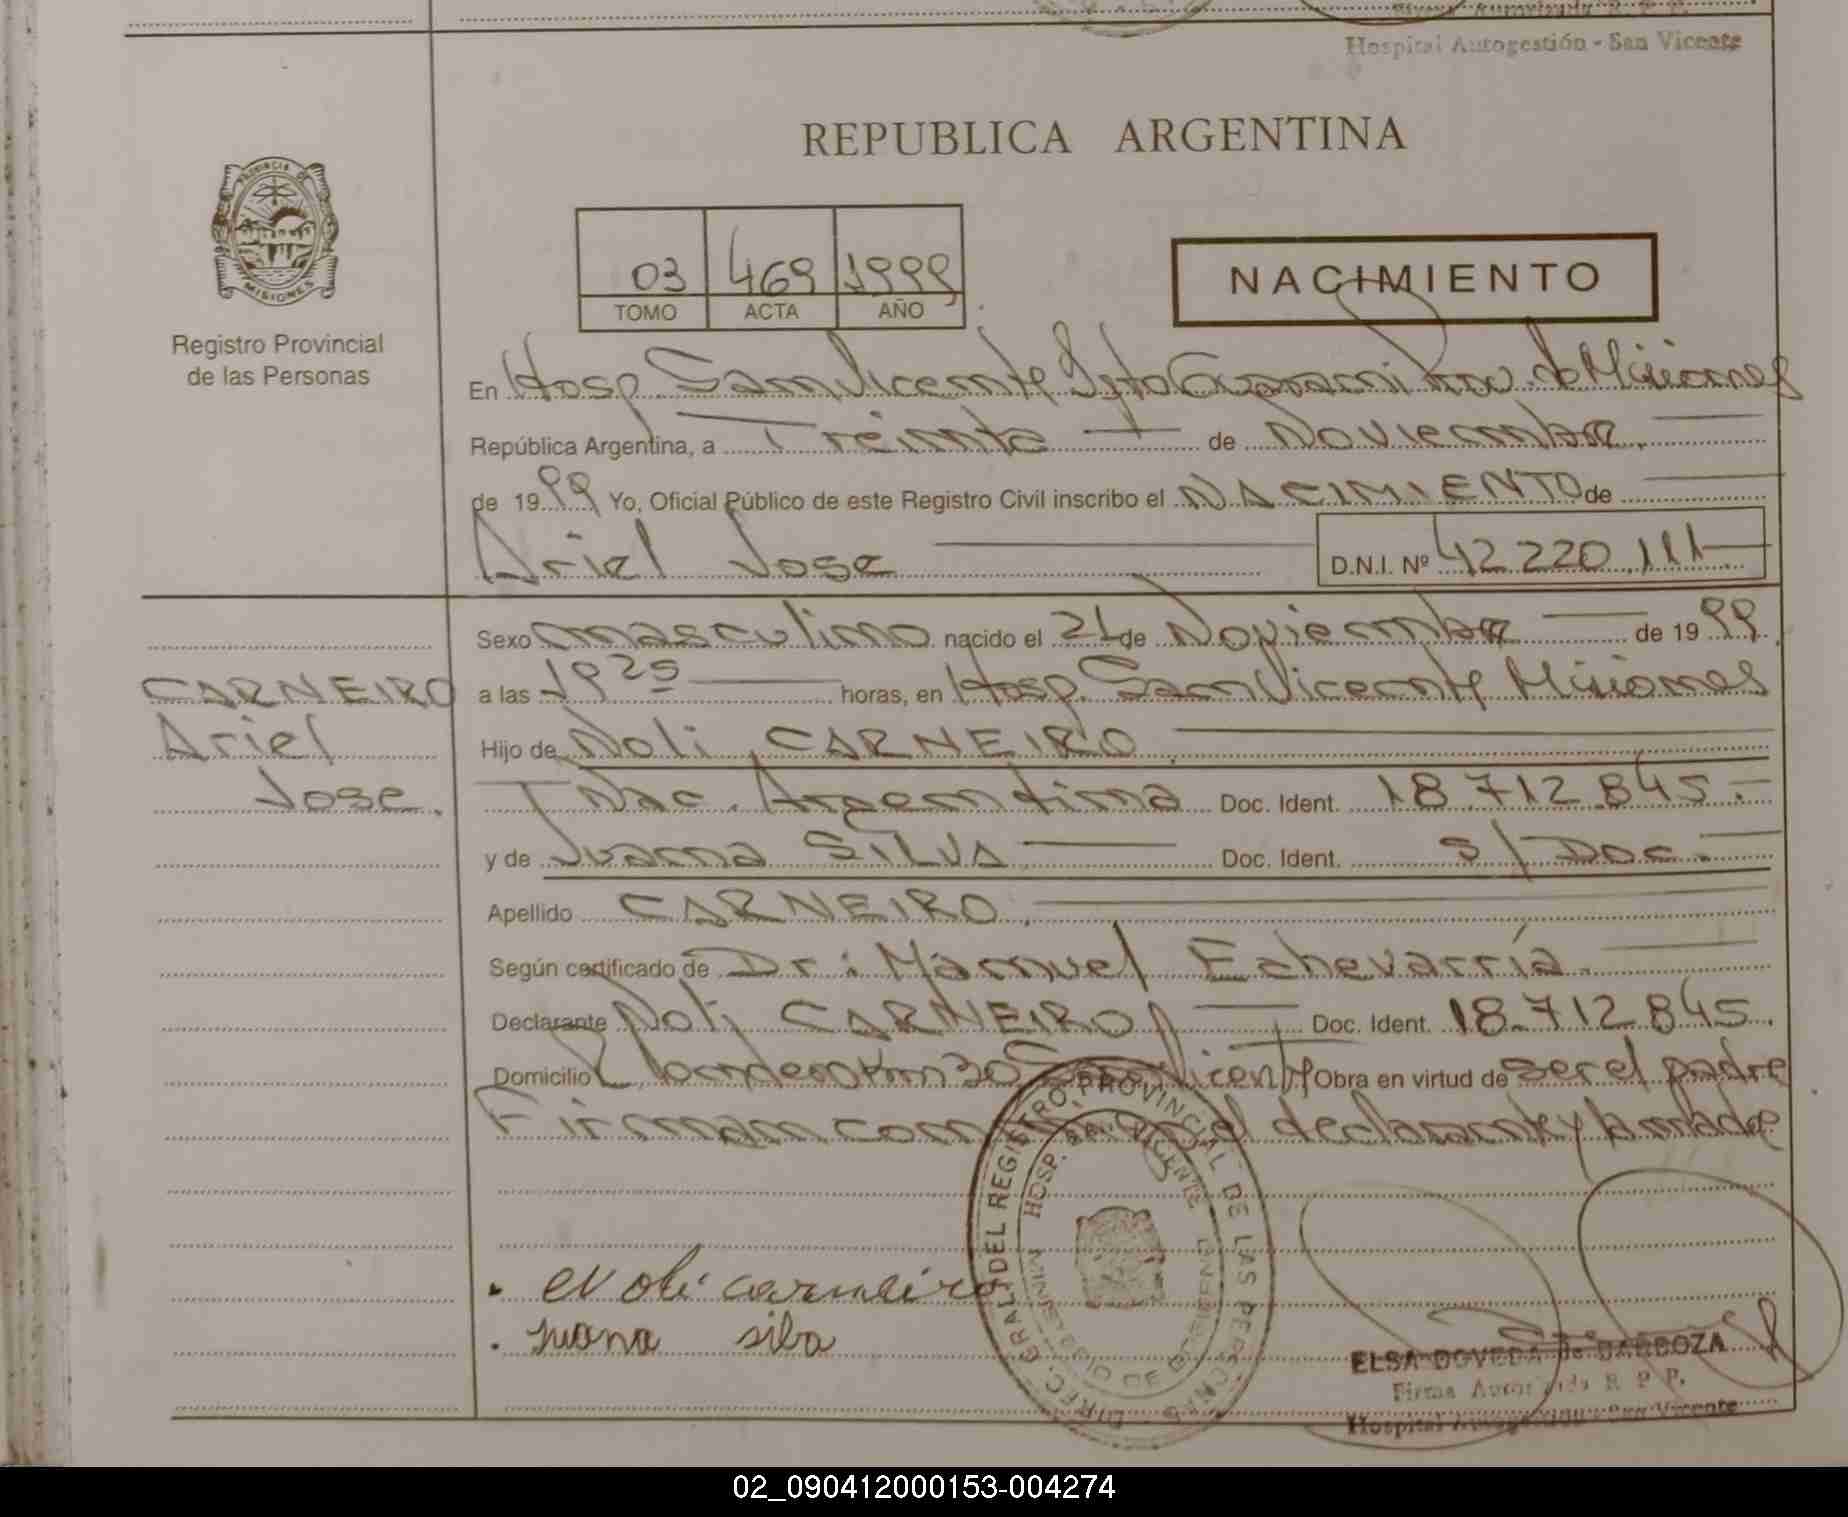 Hospital Autogestión - San Vicente
REPUBLICA ARGENTINA
PROVINCIA DE
MISIONES
Registro Provincial
de las Personas
03 469 1999
TOMO ACTA AÑO
NACIMIENTO
En Hosp. San Vicente Dpto Guarani Prov. de Misiones
República Argentina, a Treinta de Noviembre
de 1999 Yo, Oficial Público de este Registro Civil inscribo el NACIMIENTO de
Ariel Jose D.N.I. Nº 42 220.111
Sexo masculino nacido el 21 de Noviembre de 1999
CARNEIRO
Ariel
Jose.
a las 19 25 horas, en Hosp. San Vicente Misiones
Hijo de Noli CARNEIRO
Nac. Argentina Doc. Ident. 18.712.845.-
y de Juana SILVA Doc. Ident. s/Doc.
Apellido CARNEIRO
Según certificado de Dr: Manuel Echevarría
Declarante Noli CARNEIRO Doc. Ident. 18.712.845.
Domicilio Km 30 San Vicente Obra en virtud de ser el padre
Firman el declarante y la madre
DIREC. GRAL. DEL REGISTRO PROVINCIAL DE LAS PERSONAS
HOSP. SAN VICENTE
evoli carneiro
Juana silva
ELSA DOVEDA de BARBOZA
Firma Autorizada R. P. P.
Hospital Autogestión - San Vicente
02_090412000153-004274